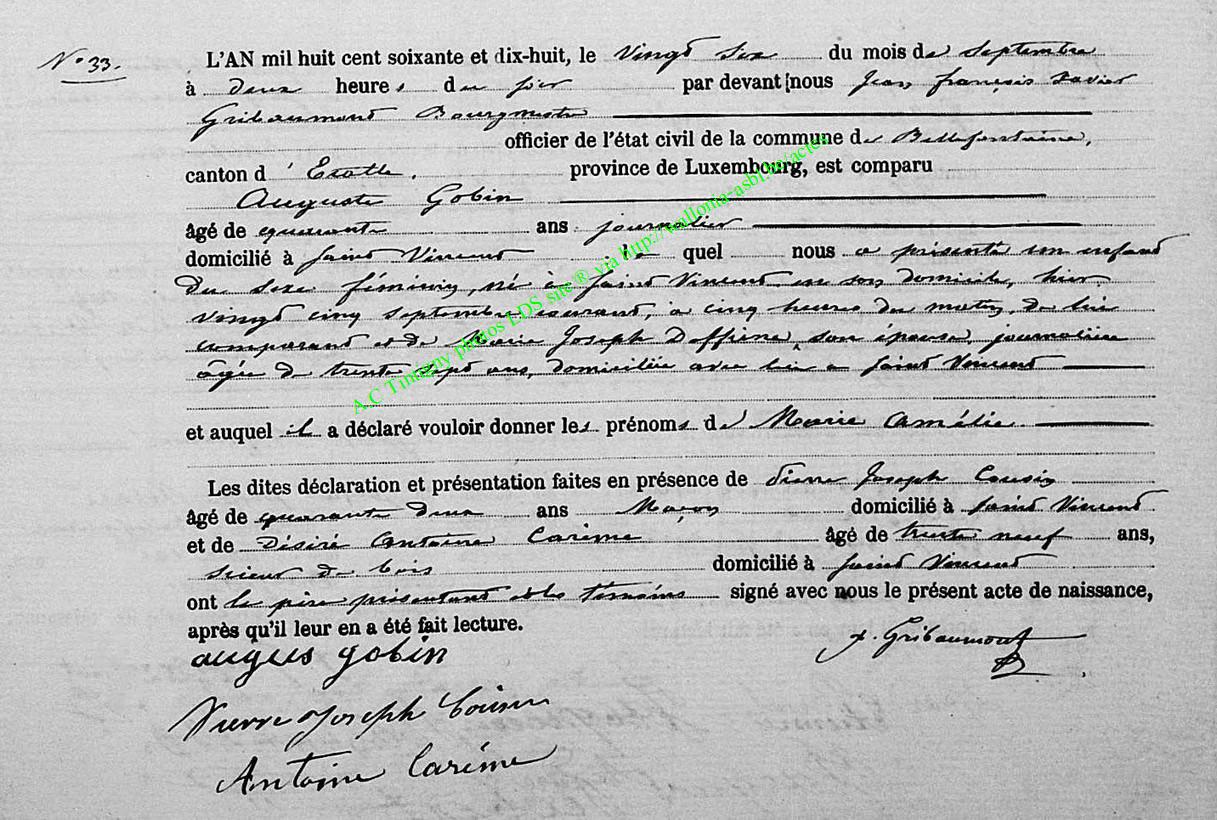 N° 33.
L'AN mil huit cent soixante et dix-huit, le vingt six du mois de Septembre
à deux heures du soir par devant nous Jean françois Xavier
Gribaumont Bourgmestre
officier de l'état civil de la commune de Bellefontaine,
canton d'Etalle, province de Luxembourg, est comparu
Auguste Gobin
âgé de quarante ans journalier
domicilié à Saint Vincent le quel nous a présenté un enfant
du sexe féminin, né à Saint Vincent en son domicile, hier
vingt cinq septembre courant, à cinq heures du matin, de lui
comparant et de Marie Joseph son épouse, journalière
agée de trente sept ans, domiciliée avec lui a Saint Vincent
et auquel il a déclaré vouloir donner les prénoms de Marie Amélie
Les dites déclaration et présentation faites en présence de Pierre Joseph Cousin
âgé de quarante deux ans Maçon domicilié à Saint Vincent
et de Désiré Antoine Carême âgé de trente neuf ans,
scieur de bois domicilié à Saint Vincent
ont le père présentant et les témoins signé avec nous le présent acte de naissance,
après qu'il leur en a été fait lecture.
augus gobin
x. Gribaumont
Pierre Joseph Cousin
Antoine Carême
A.C Tintigny photos LDS site ® via http://wallonia-asbl.be/actes